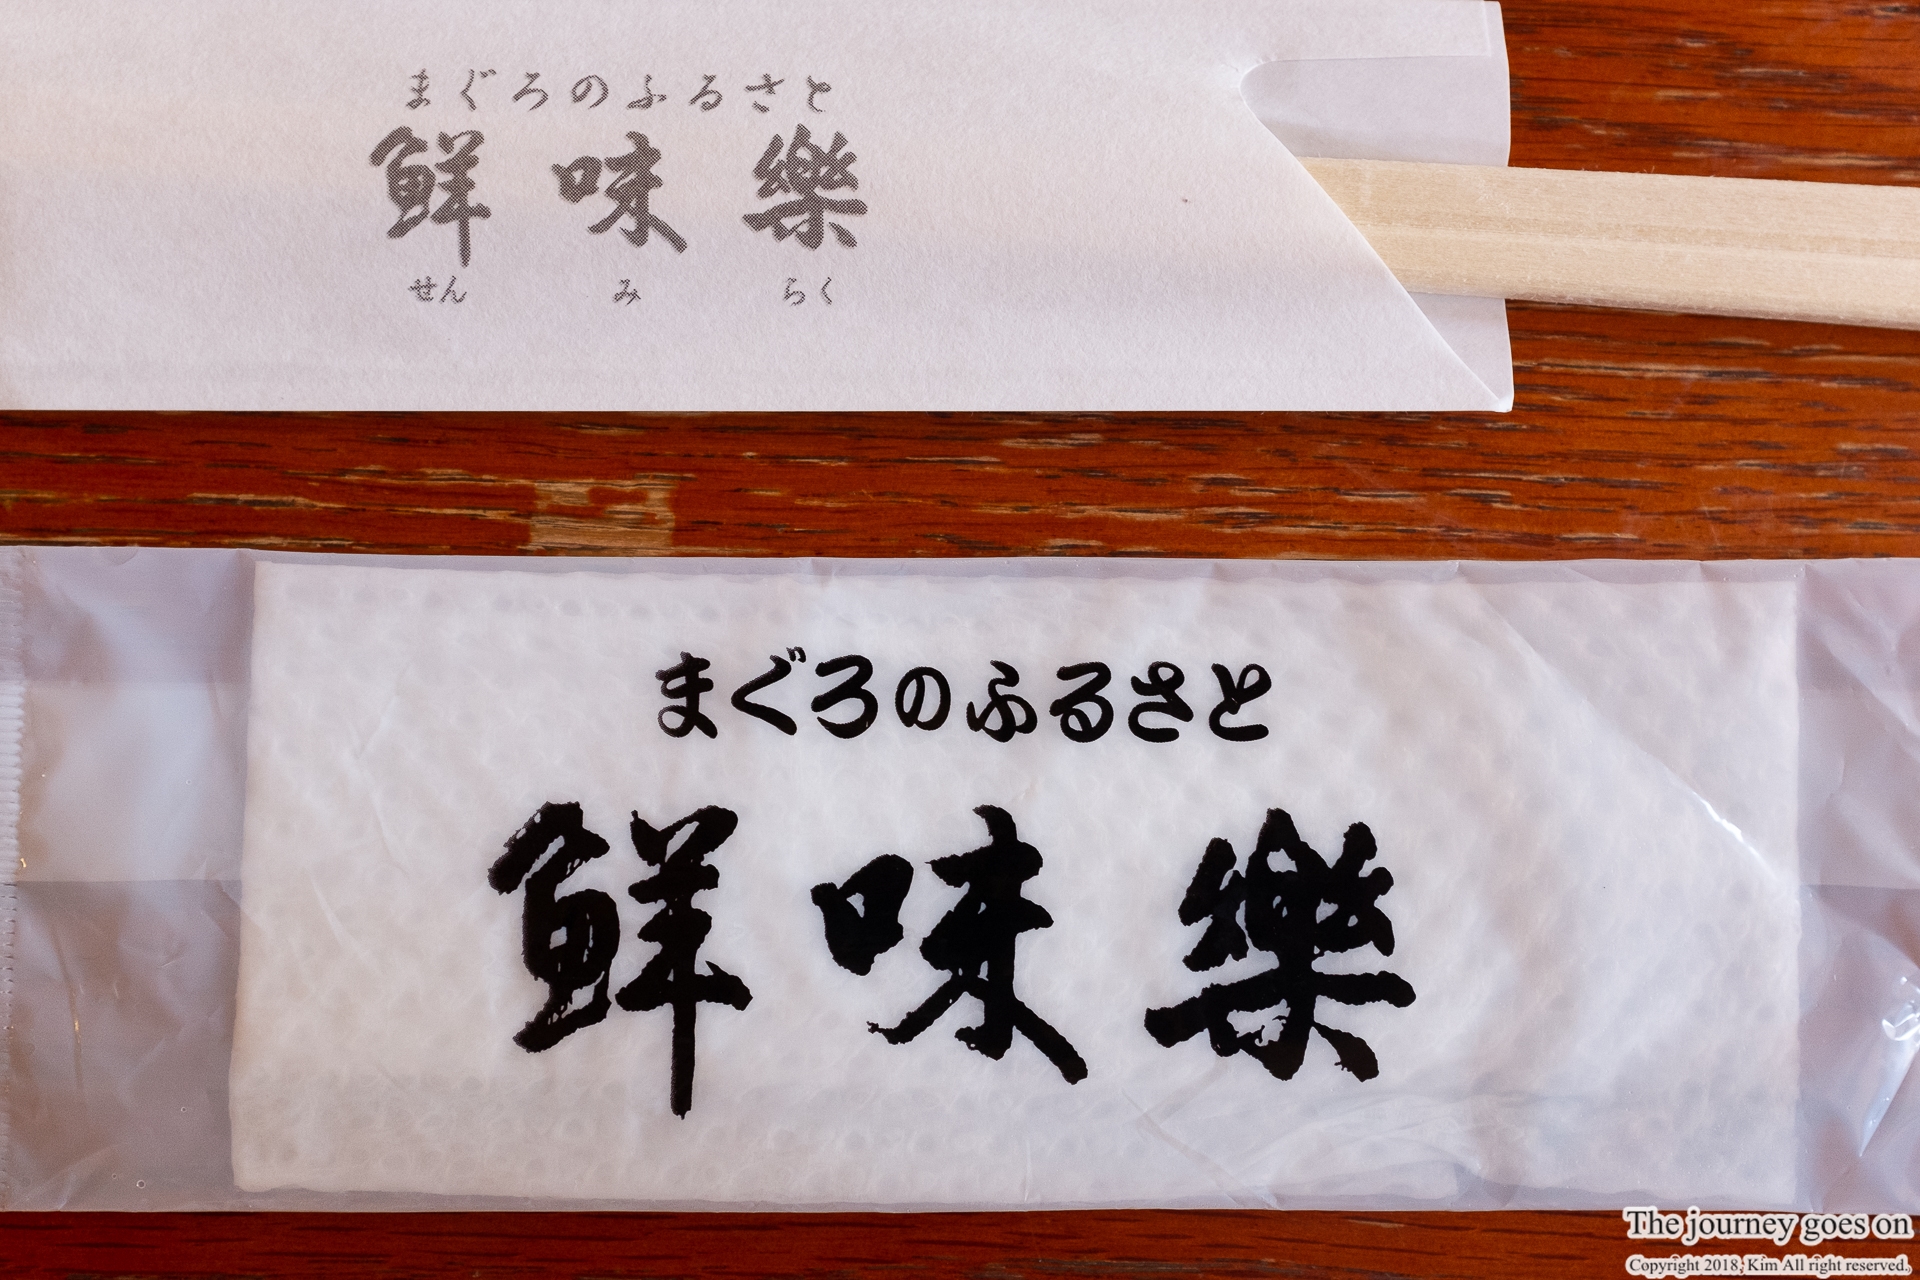 まぐろのふるさと
鮮味樂
せん み らく
まぐろのふるさと
鮮味樂
The journey goes on
Copyright 2018, Kim All right reserved.